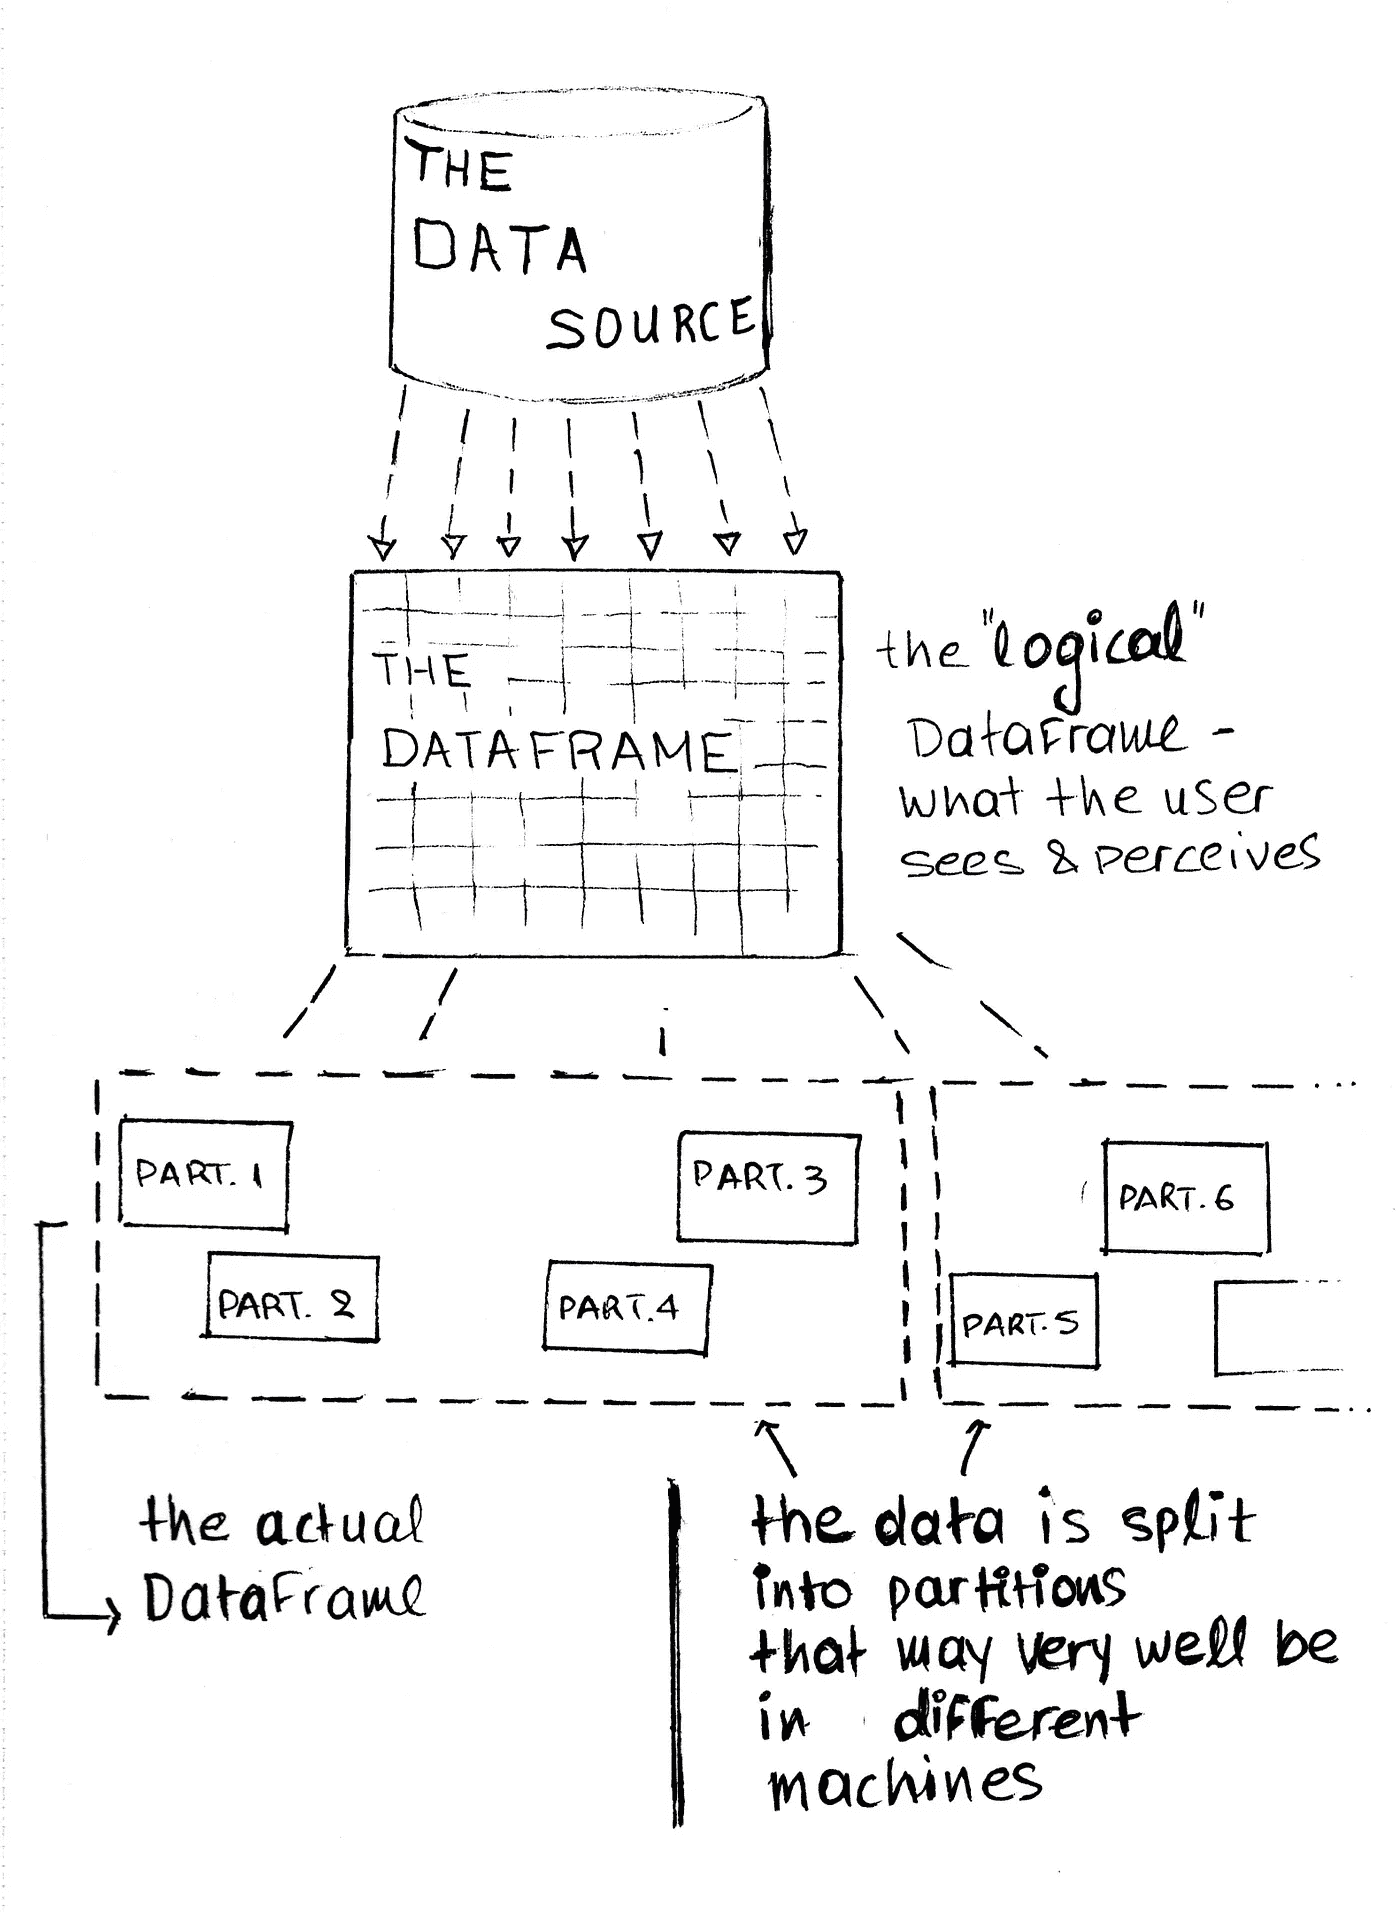 THE
DATA
SOURCE
THE
DATAFRAME
the "logical"
DataFrame -
what the user
sees & perceives
PART. 1
PART. 3
PART. 6
PART. 2
PART.4
PART.5
the actual
DataFrame
the data is split
into partitions
that may very well be
in different
machines